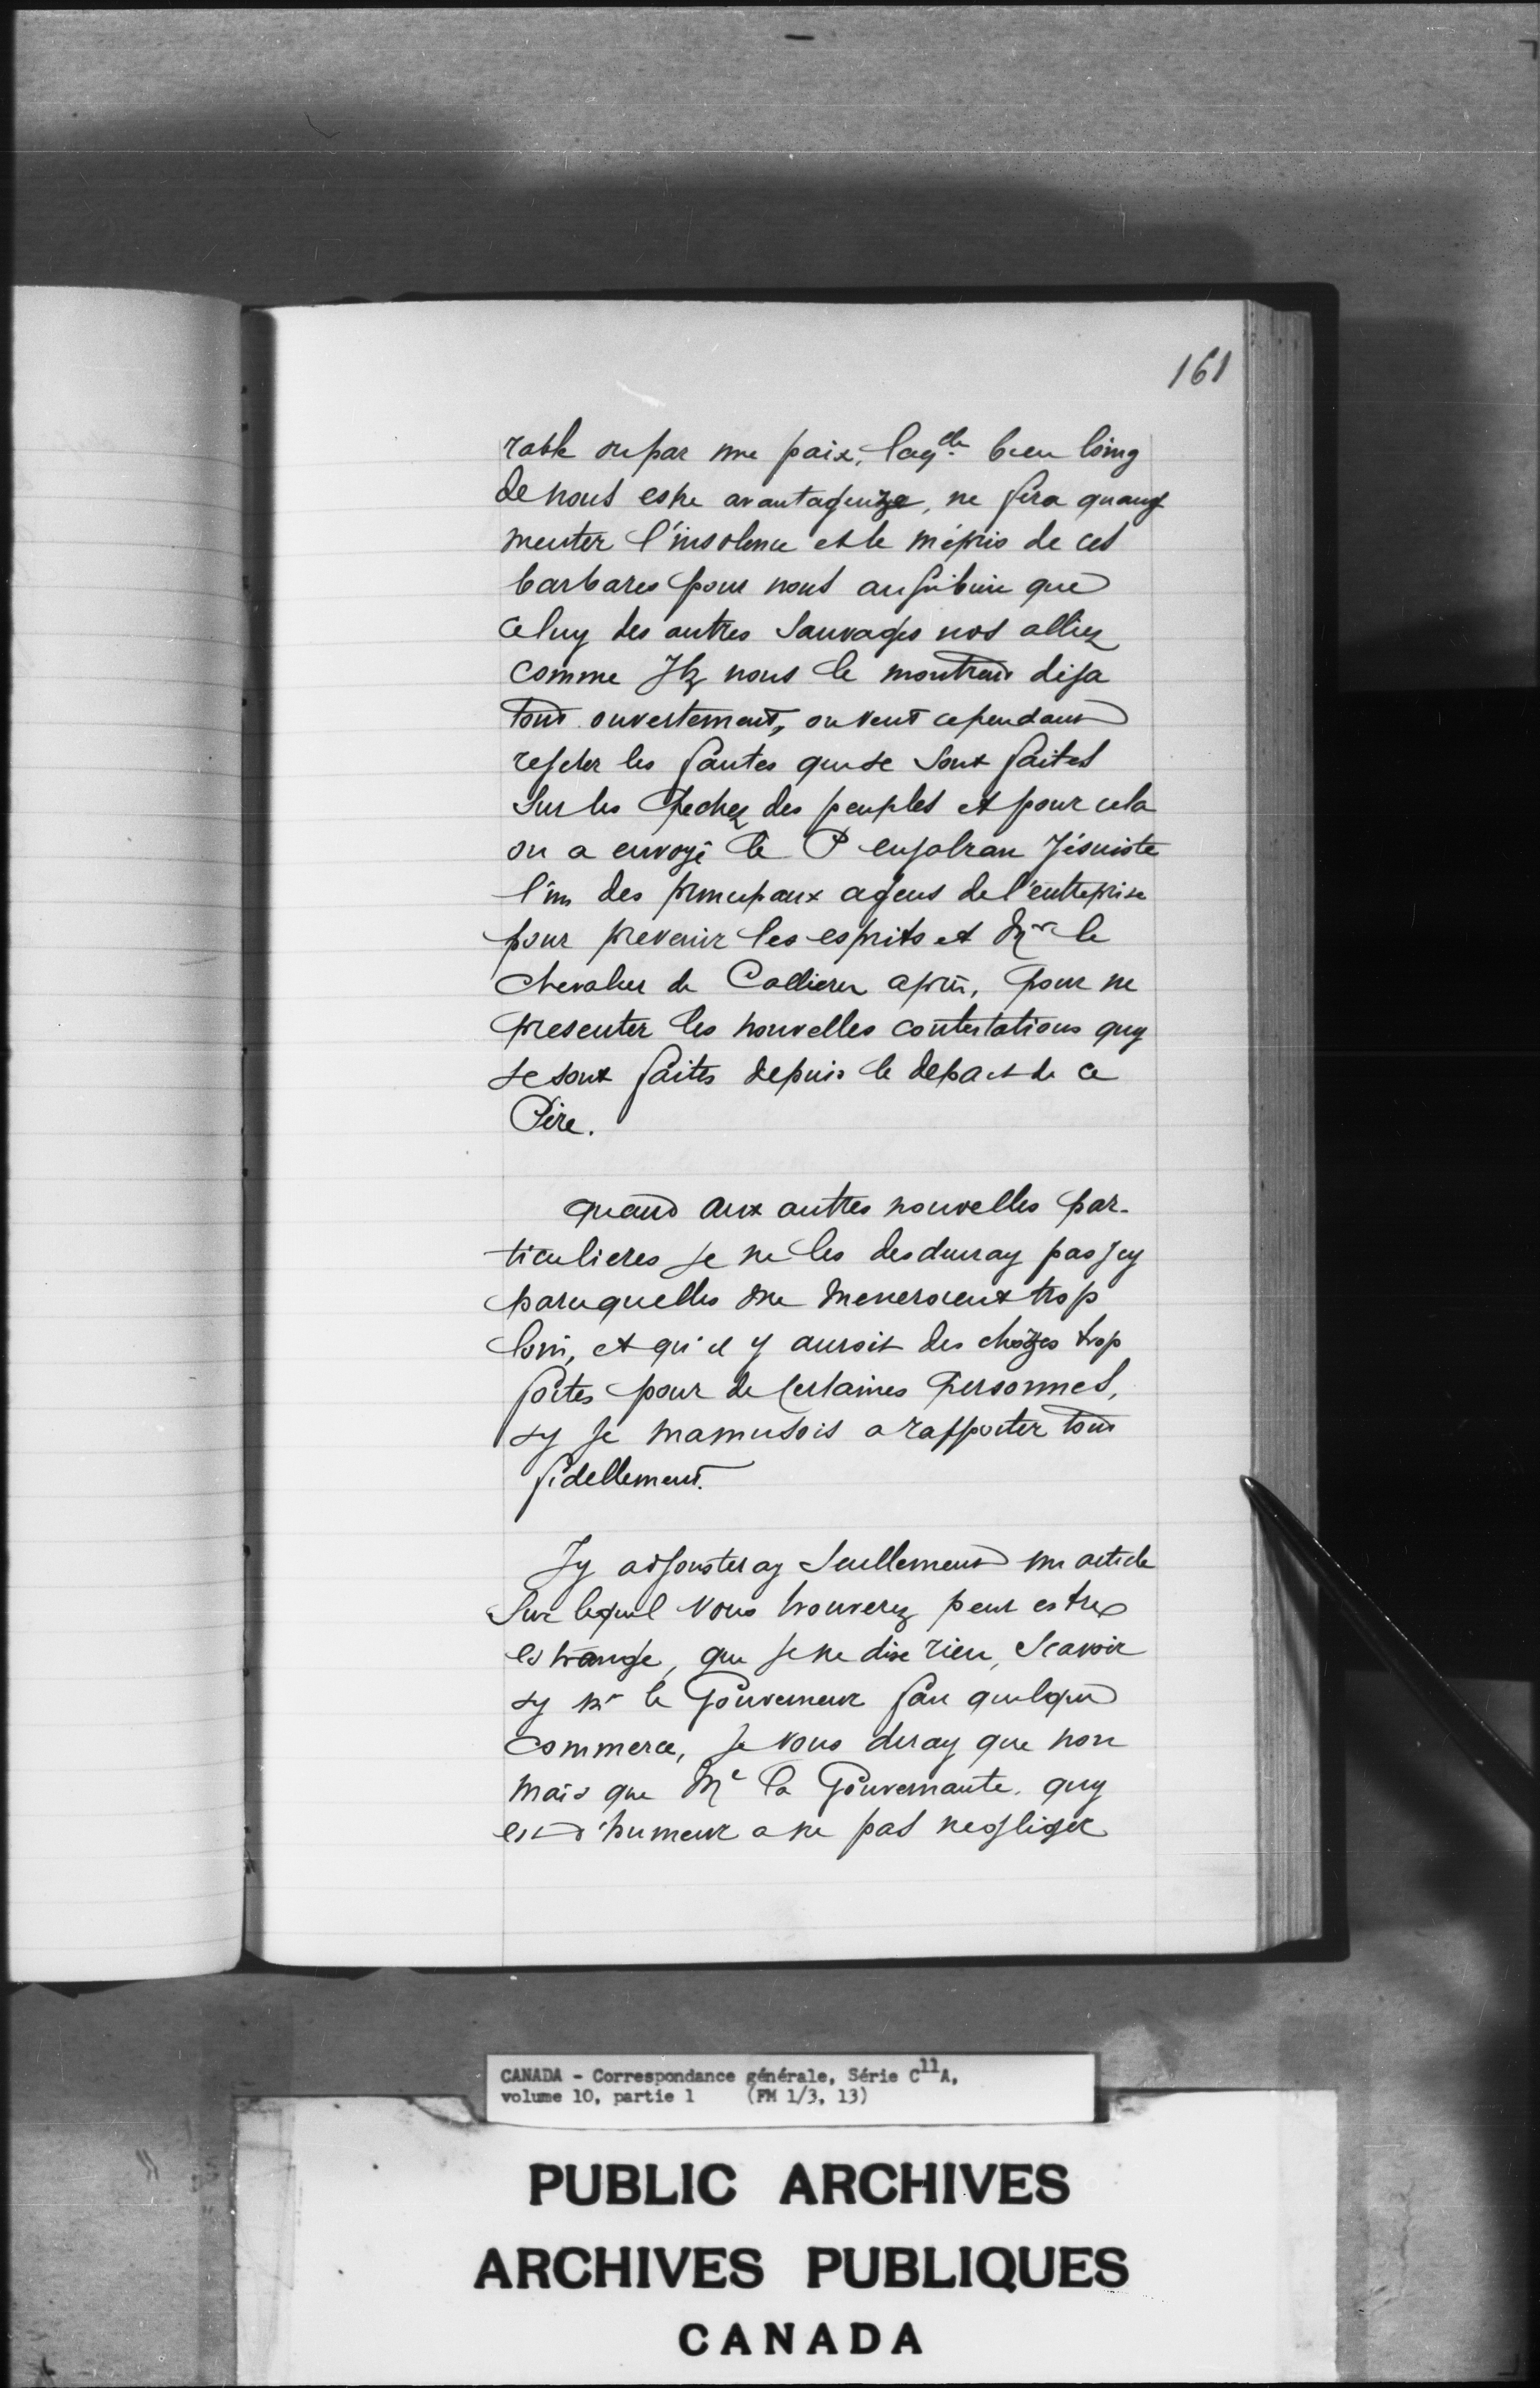 161
rable ou par une paix, laq.lle bien loing
de nous estre avantageuze, ne fera quaug
menter l'insolence et le mépris de ces
barbares pour nous aussibien que
celuy des autres Sauvages nos alliez
comme Ilz nous le montrent deja
tout ouvertement, on veut cependant
rejeter les fautes qui se sont faites
sur les Pechez des peuples et pour cela
on a envoyé le P enjalran Jésuiste
l'un des principaux agens de l'entreprise
pour prevenir les esprits et Mr le
Chevalier de Callieres après, pour ne
presenter les nouvelles contestations quy
se sont faites depuis le depart de ce
Père.
quand aux autres nouvelles par-
ticulieres je ne les desduiray pas Jcy
parcequelles me meneroient trop
loin, et qu'il y auroit des chozes trop
fortes pour de Certaines Personnes,
sy je mamusois a rapporter tout
fidellement.
Jy adjousteray Seullement un article
sur lequel vous trouverez peut estre
estrange, que je ne dise rien, Scavoir
sy Mr le Gouverneur fait quelque
commerce, je vous diray que non
mais que Me la Gouvernante, quy
est d'humeur a ne pas negliger
CANADA - Correspondance générale, Série C11A,
volume 10, partie 1 (FM 1/3, 13)
PUBLIC ARCHIVES
ARCHIVES PUBLIQUES
CANADA